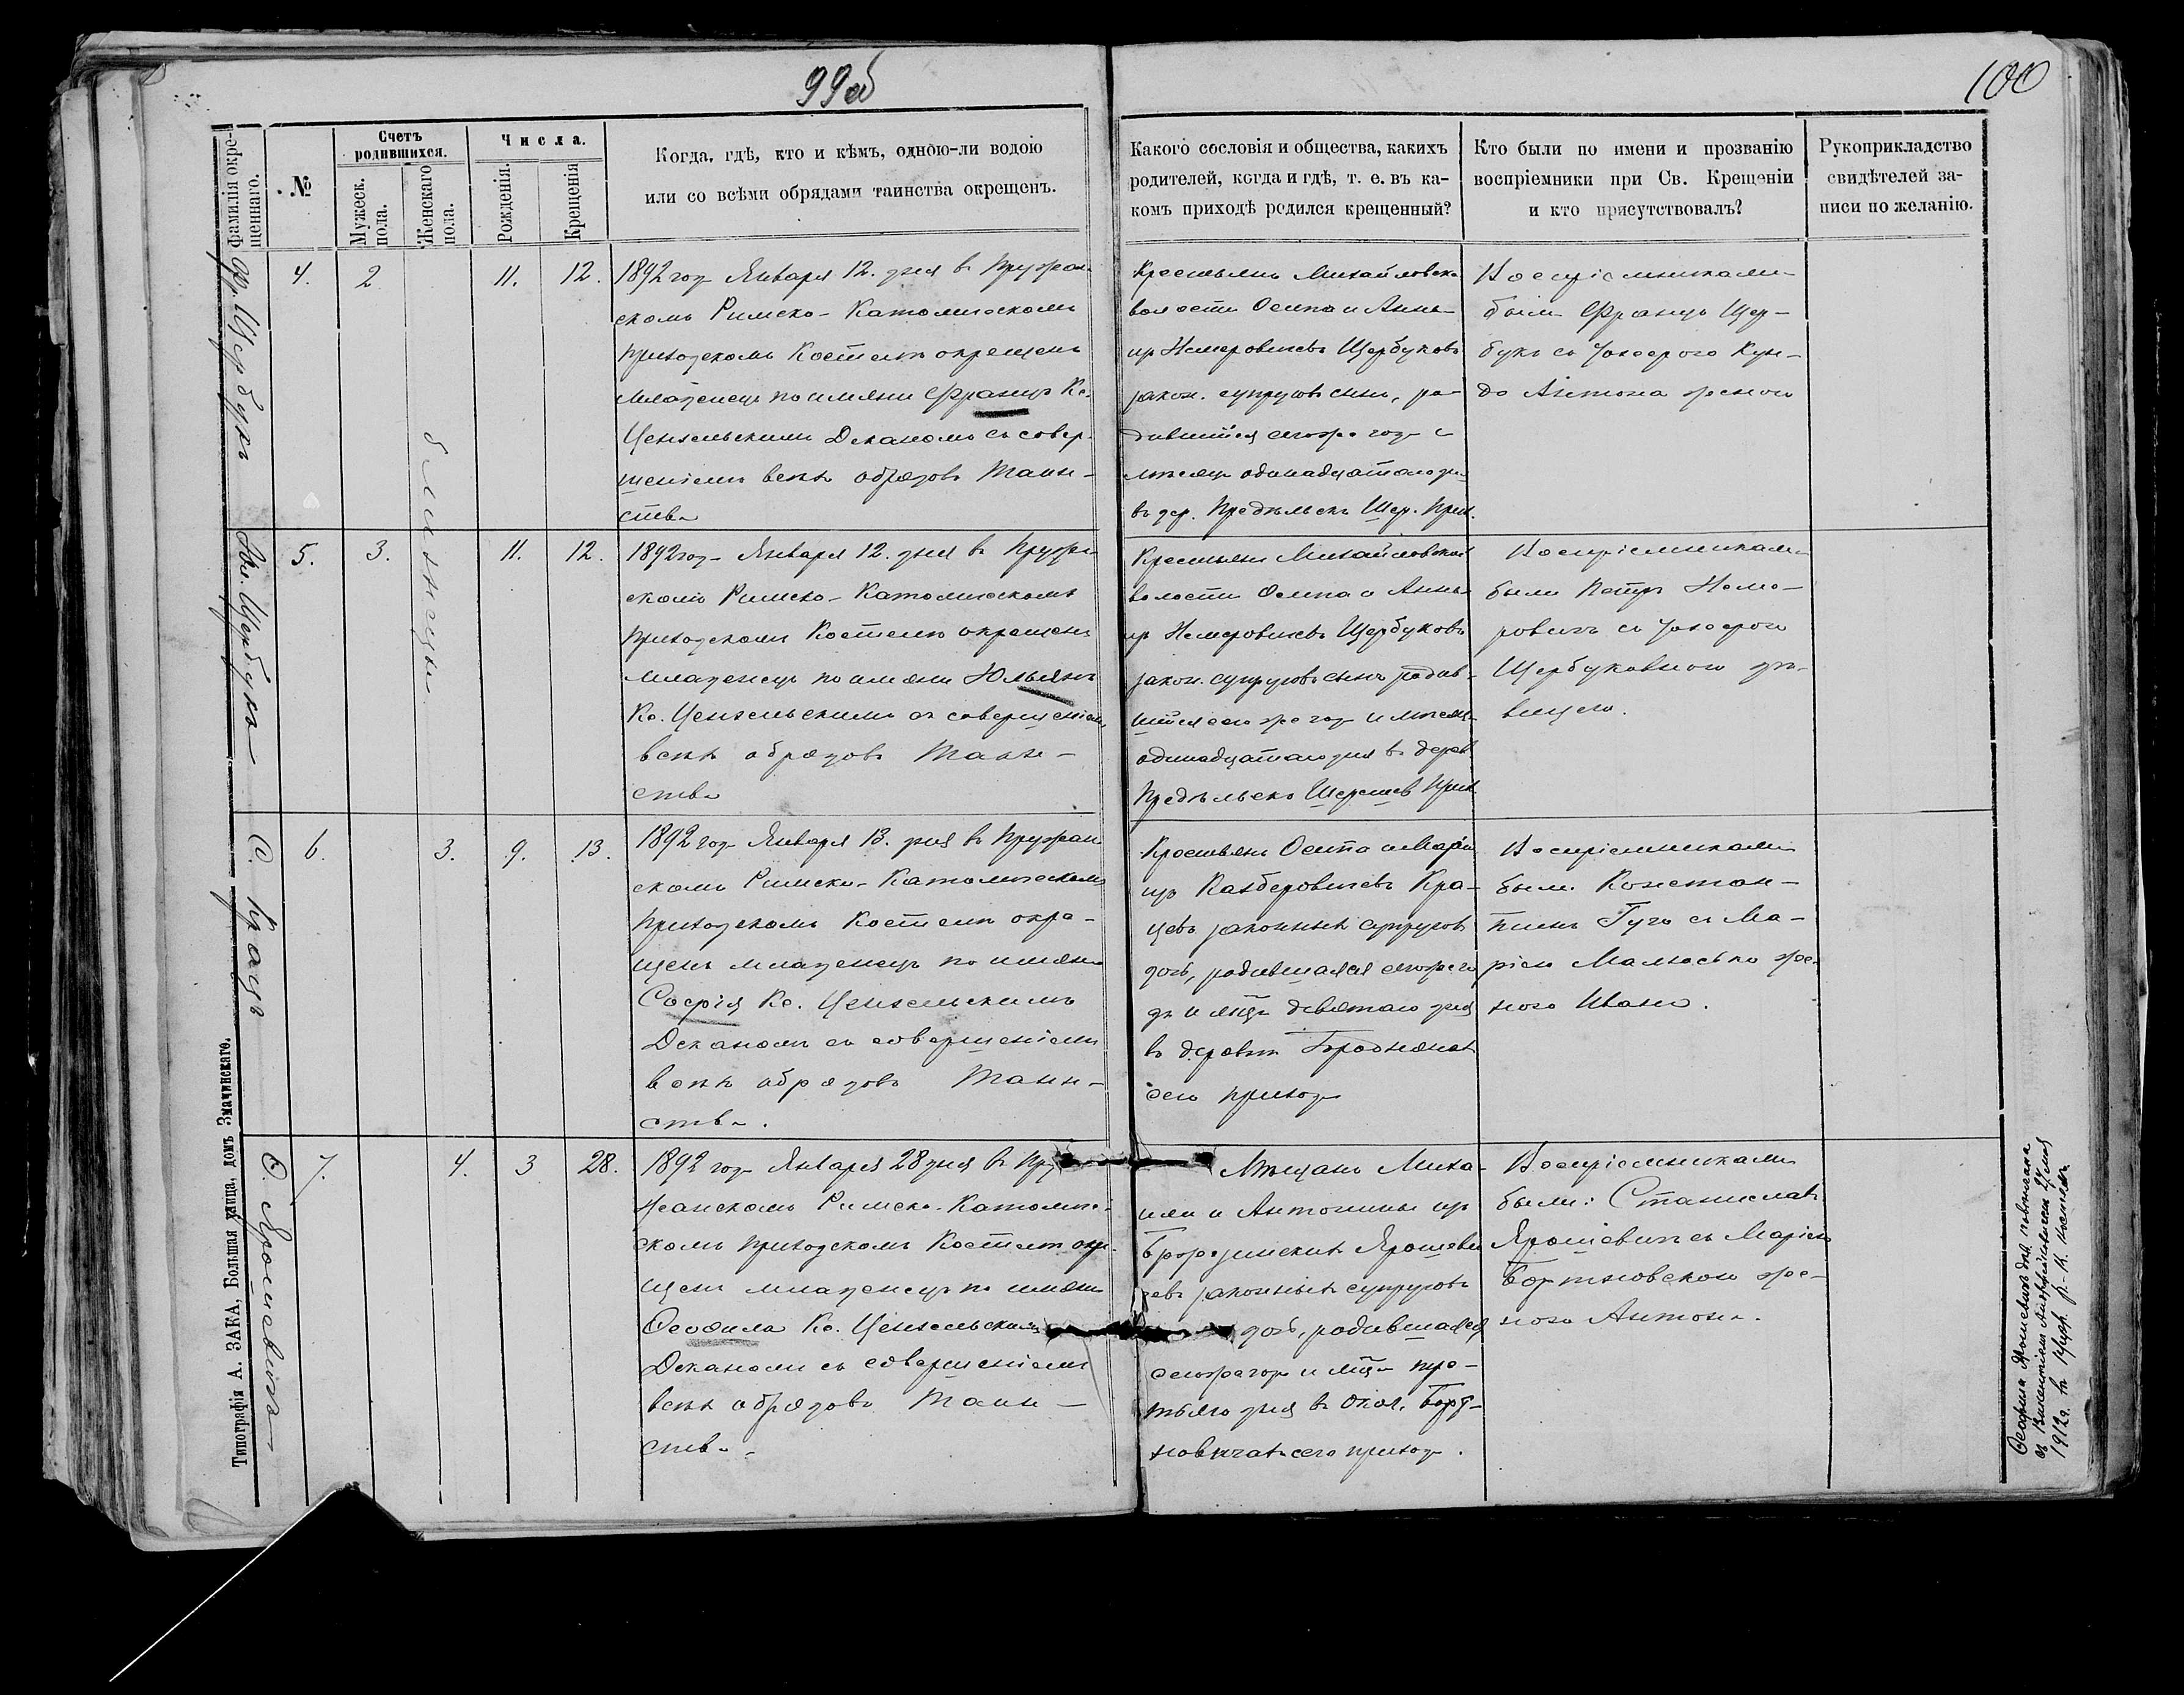 99об
100
Фамилія окре-
щеннаго.
№
Счетъ
родившихся.
Мужеск.
пола.
Женскаго
пола.
Числа.
Рожденія.
Крещенія
Когда, гдѣ, кто и кѣмъ, одною-ли водою
или со всѣми обрядами таинства окрещенъ.
Какого сословія и общества, какихъ
родителей, когда и гдѣ, т. е. въ ка-
комъ приходѣ родился крещенный?
Кто были по имени и прозванію
воспріемники при Св. Крещеніи
и кто присутствовалъ?
Рукоприкладство
свидѣтелей за-
писи по желанію.
Фр. Щербукъ
4.
2
11.
12.
1892 года Января 12. дня въ Пружан-
скомъ Римско-Католическомъ
приходскомъ Костелѣ окрещенъ
младенецъ по имяни Францъ Кс.
Ценкельскимъ Деканомъ съ совер-
шеніемъ всѣхъ обрядовъ Таин-
ства
Крестьянъ Михайловской
волости Осипа и Анны
изъ Немеровичевъ Щербуковъ
закон. супруговъ сынъ, ро-
дившійся сегоже года и
мѣсяца одинадцатого дня
въ дер. Предѣльскъ Шер. Прих.
Воспріемниками
были Францъ Щер-
букъ съ Юзефою Кун-
до Антона женою
близнецы
Юл. Щербукъ
5.
3.
11.
12.
1892 года Января 12. дня въ Пружан
скомъ Римско-Католическомъ
приходскомъ Костелѣ окрещенъ
младенецъ по имяни Юльянъ
Кс. Ценкельскимъ съ совершеніемъ
всѣхъ обрядовъ Таин-
ства
Крестьянъ Михайловской
волости Осипа и Анны
изъ Немеровичевъ Щербуковъ
закон. супруговъ сынъ родив-
шійся сего же года и мѣсяца
одинадцатаго дня въ дерев
Предѣльскъ Шерешев Прих.
Воспріемниками
были Петръ Неме-
ровичъ съ Юзефою
Щербуковною дѣ-
вицею.
С. Крацъ
6.
3.
9.
13.
1892 года Января 13. дня въ Пружан
скомъ Римско-Католическомъ
приходскомъ Костелѣ окре-
щенъ младенецъ по имяни
Софія Кс. Ценкельскимъ
Деканомъ съ совершеніемъ
всѣхъ обрядовъ Таин-
ства.
Крестьянъ Осипа и Маріи
изъ Кра-
цевъ законныхъ супруговъ
дочь, родившаяся сегоже го
да и мца девятаго дня
въ деревнѣ
сего прихода
Воспріемниками
были Констан-
тинъ Гучъ съ Ма-
ріею Малюсько же-
ною Ивана.
Ѳ. Ярошевичъ
7.
4.
3
28.
1892 года Января 28 дня въ Пру
жанскомъ Римско-Католиче-
скомъ приходскомъ Костелѣ окре-
щенъ младенецъ по имяни
Ѳеофила Кс. Ценкельскимъ
Деканомъ съ совершеніемъ
всѣхъ обрядовъ Таин-
ства.
Мѣщанъ Миха-
ила и Антонины изъ
Ярошеви
чевъ законныхъ супруговъ
дочь, родившаяся
сегоже года и мца тре-
тьяго дня въ окол.
сего прихода.
Воспріемниками
были: Станиславъ
Ярошевичъ съ Маріею
Бортновскою же-
ною Антона.
Ѳеофила Ярошевичъ повѣнчана
съ
1912г. въ Пруж. Р.-К. костелѣ.
Типографія А. ЗАКА, Большая улица, домъ Змачинскаго.